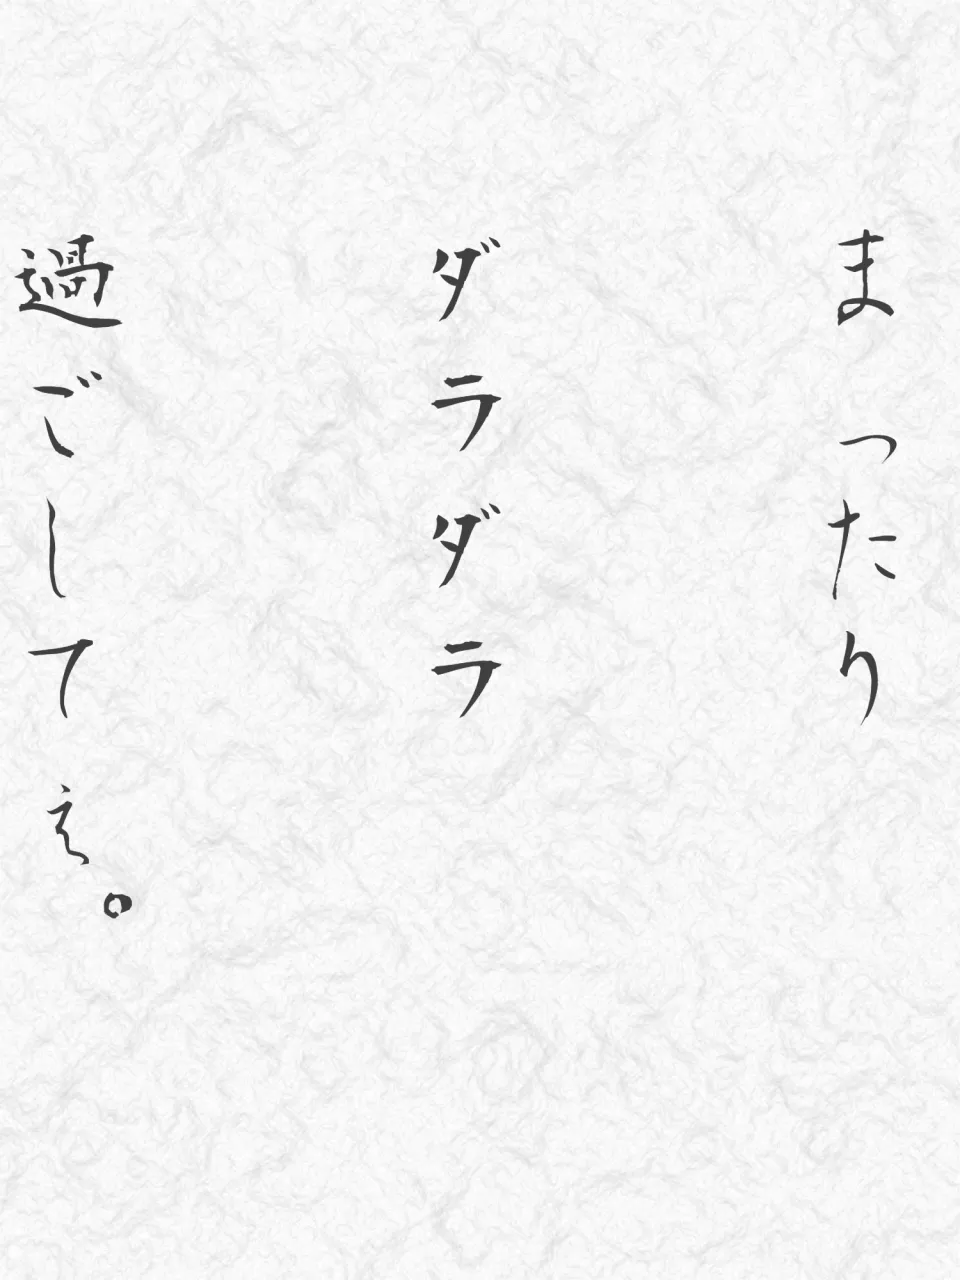 まったり
ダラダラ
過ごしてぇ。